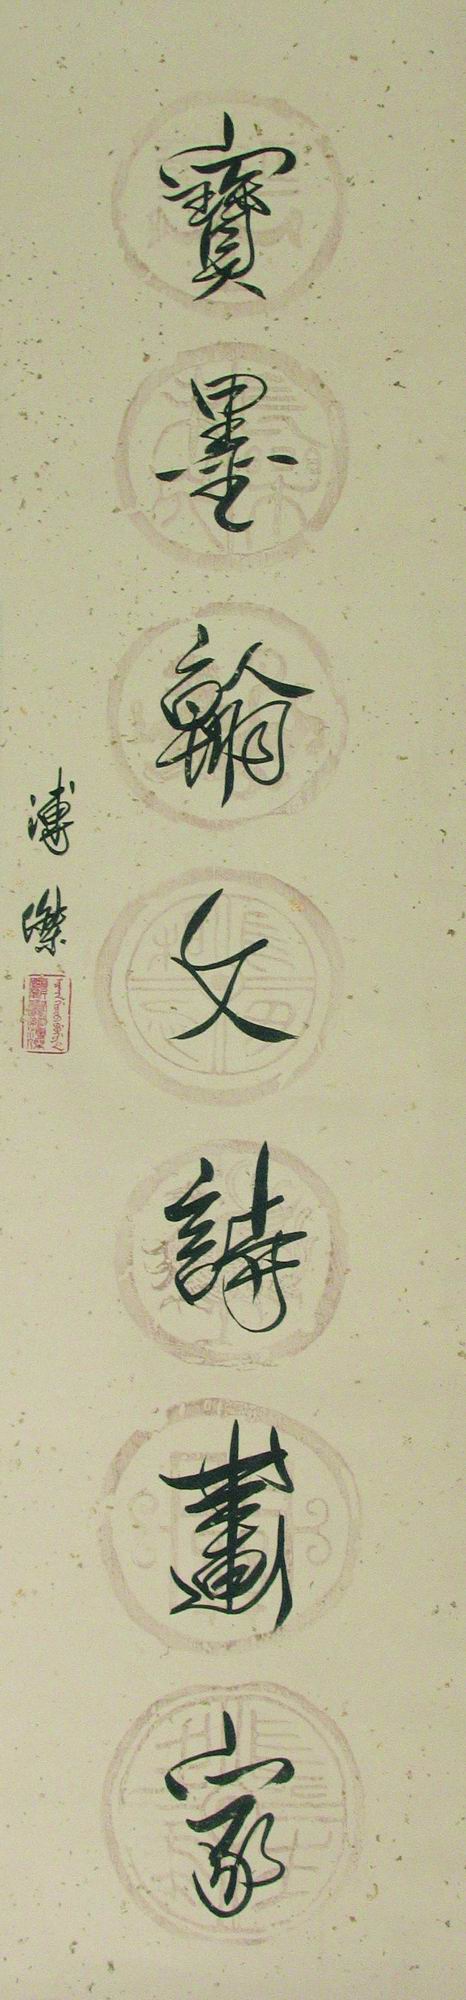 寶墨翰文詩畫家
溥傑